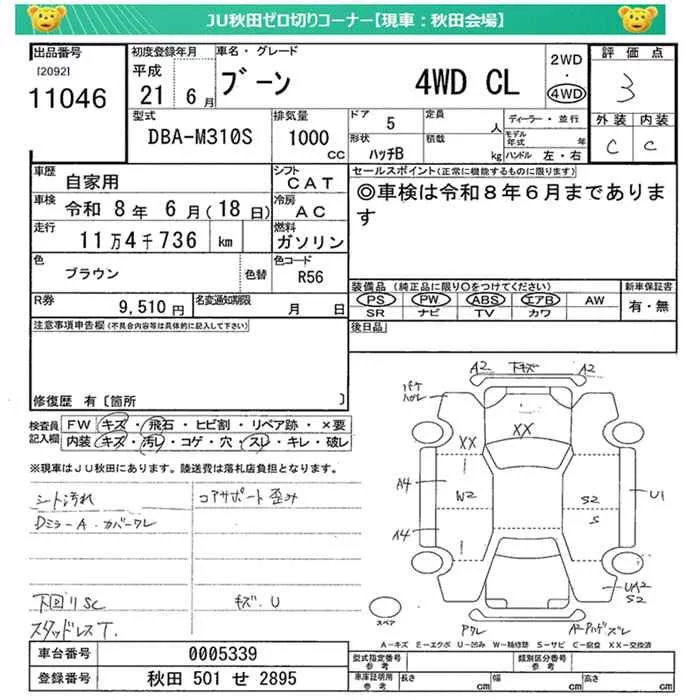 JU秋田ゼロ切りコーナー【現車：秋田会場】
出品番号
[2092]
11046
初度登録年月
平成
21 6月
車名・グレード
ブーン 4WD CL
2WD
・
4WD
評価点
3
外装 内装
C C
型式
DBA-M310S
排気量
1000
CC
ドア 5
形状
ハッチB
定員
人
積載
kg
ディーラー・並行
モデル年式 年
ハンドル 左・右
車歴
自家用
シフト
CAT
車検
令和 8年 6月(18日)
冷房
AC
走行
11万4千736 km
燃料
ガソリン
色
ブラウン
色替
色コード
R56
R券
9,510円
名変通知期限
月 日
セールスポイント(正常に機能するものに限ります)
◎車検は令和8年6月まであります
装備品 (純正品に限り○をつけてください)
PS PW ABS エアB AW
SR ナビ TV カワ
新車保証書
有・無
後日品
注意事項申告欄(不具合内容等は具体的に記入して下さい)
修復歴 有〔箇所 〕
検査員記入欄
FW キズ・飛石・ヒビ割・リペア跡・×要
内装 キズ・汚レ・コゲ・穴・スレ・キレ・破レ
※現車はJU秋田にあります。陸送費は落札店負担となります。
シート汚れ
Dミラ-A・カバーワレ
下回リSC
スタッドレスT.
コアサポート歪み
キズ.U
A2 下キズ A2
ハガレ
XX
XX
A4
W2
S2
S
U1
A4
UA2
S2
スペア
Aワレ
A-キズ E-エクボ U-凹み W-補修跡 S-サビ C-腐食 XX-交換済
車台番号
0005339
登録番号
秋田 501 せ 2895
型式指定番号
参考
類別区分番号
参考
車庫証明用
参考
長さ cm
幅 cm
高さ cm